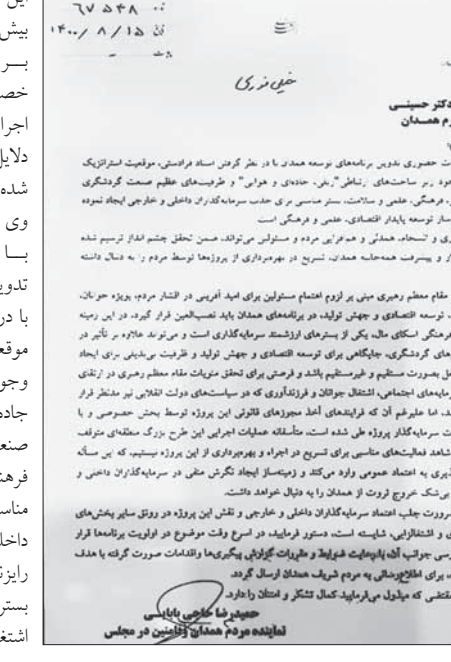 ۶۷۵۴۸
۱۴۰۰/۸/۱۵
خیلی فوری
دکتر حسینــی
م همــدان
ات حضوری تدوین برنامه‌های توسعه همدان با در نظر گرفتن اسناد فرادستی، موقعیت استراتژیک
ود زیر ساخت‌های ارتباطی "ریلی، جاده‌ای و هوایی" و ظرفیت‌های عظیم صنعت گردشگری
، فرهنگی، علمی و سلامت، بستر مناسبی برای جذب سرمایه‌گذاران داخلی و خارجی ایجاد نموده
ساز توسعه پایدار اقتصادی، علمی و فرهنگی است
ی و انسجام، همدلی و هم‌افزایی مردم و مسئولین می‌تواند، ضمن تحقق چشم انداز ترسیم شده
ار و پیشرفت همه‌جانبه همدان، تسریع در بهره‌برداری از پروژه‌ها توسط مردم را به دنبال داشته
مقام معظم رهبری مبنی بر لزوم اهتمام مسئولین برای امید آفرینی در اقشار مردم، بویژه جوانان،
، توسعه اقتصادی و جهش تولید، در برنامه‌های همدان باید نصب‌العین قرار گیرد. در این زمینه
فرهنگی اسکای مال، یکی از بسترهای ارزشمند سرمایه‌گذاری است و می‌تواند علاوه بر تأثیر در
های گردشگری، جایگاهی برای توسعه اقتصادی و جهش تولید و ظرفیت بی‌بدیلی برای ایجاد
ل بصورت مستقیم و غیرمستقیم باشد و فرصتی برای تحقق منویات مقام معظم رهبری در ارتقای
مایه‌های اجتماعی، اشتغال جوانان و فرزندآوری که در سیاست‌های دولت انقلابی نیز مدنظر قرار
د، اما علیرغم آن که فرایندهای أخذ مجوزهای قانونی این پروژه توسط بخش خصوصی و با
ت سرمایه‌گذار پروژه طی شده است، متأسفانه عملیات اجرایی این طرح بزرگ منطقه‌ای متوقف
شاهد فعالیت‌های مناسبی برای تسریع در اجراء و بهره‌برداری از این پروژه نیستیم، که این مسأله
ذیری به اعتماد عمومی وارد می‌کند و زمینه‌ساز ایجاد نگرش منفی در سرمایه‌گذاران داخلی و
بی‌شک خروج ثروت از همدان را به دنبال خواهد داشت.
ضرورت جلب اعتماد سرمایه گذاران داخلی و خارجی و نقش این پروژه در رونق سایر بخش‌های
ی و اشتغالزایی، شایسته است، دستور فرمایید، در اسرع وقت موضوع در اولویت برنامه‌ها قرار
رسی جوانب آن، با رعایت ضوابط و مقررات گزارش پیگیری‌ها و اقدامات صورت گرفته با هدف
، برای اطلاع‌رسانی به مردم شریف همدان ارسال گردد.
مقتضی که مبذول می‌فرمایید کمال تشکر و امتنان را دارد.
حمیدرضا حاجی بابایــی
نماینده مردم همدان و فامنین در مجلس
بیش
بــر
خص
اجرا
دلایل
شده
وی
بــا
تدوی
با در
موقع
وجو
جاده
صنع
فرهن
مناس
داخل
رایزن
بستر
اشتغ